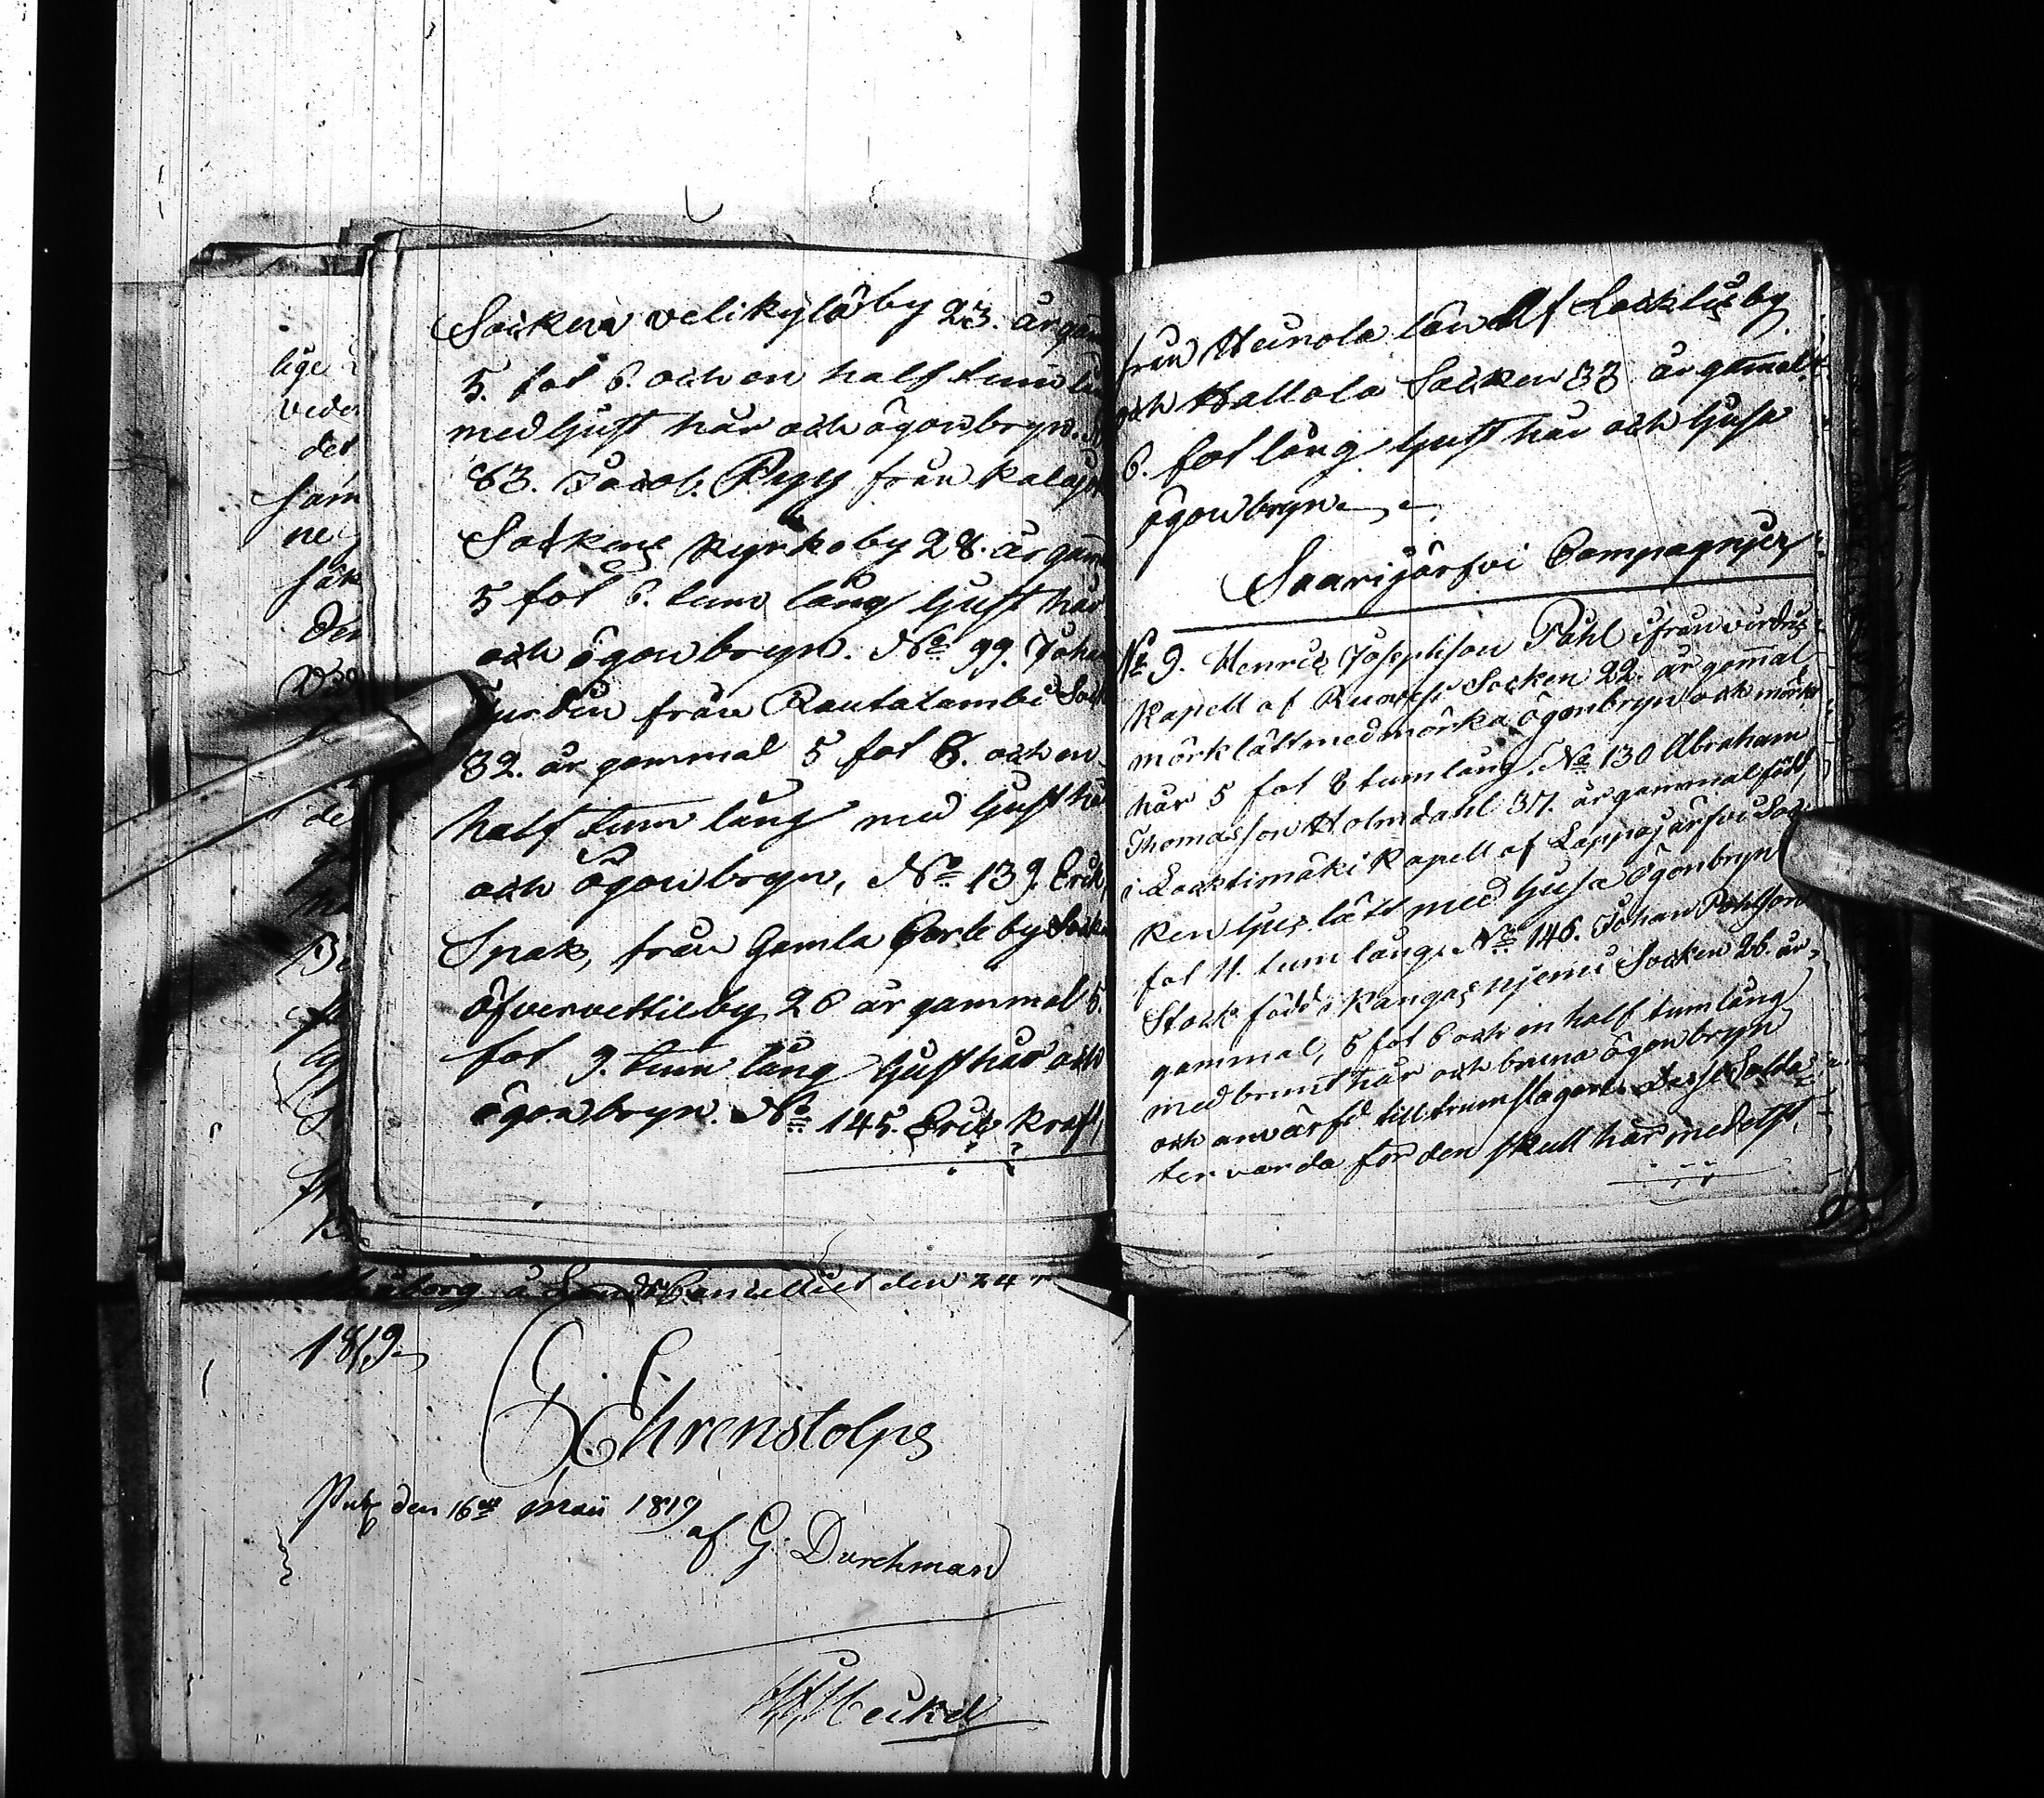 Sockens velikylä by 23. år gam
5. fot 6. och en half tum lån
med ljust hår och ögonbryn. N
63. Jacob. Pyy från kalajo
Sockens Kyrko by 28. år gam
5 fot 6. tum lång ljust hår
och ögonbryn. No 99. Johan
Turdin från Rautalambi Sock
32. år gammal 5 fot 8. och en
half tum lång med ljust hår
och Ögonbryn, No 139. Erik,
Spak, från Gamla Carleby Socke
öfvervettil by 26 år gammal 5.
fot 9. tum lång ljust hår och
ögonbryn. No 145. Eric Kraft,
från Heinola län Af Lacktis by
och Hallola Socken 33 år gamal
6. fot lång ljust hår och ljusa
ögonbryn
Saarijärfvi Compagnjer
No 9. Henric Josephson Påhl ifrån virdois
Kapell af Ruovesi Socken 22. år gamal
mörklätt med mörka ögonbryn och mörkt
hår 5 fot 8 tum lång. No 130 Abraham
Thomasson Holmdahl 37. år gammal född
i Lacktimäki Kapell af Lappajärfvi Soc
ken ljus lätt med ljusa ögonbryn
fot 11. tum lång. No 146. Johan Pohlson
Stack född i Kangasnjemi Socken 26. år
gammal, 5 fot 6 och en half tum lång
med brunt hår och bruna ögonbryn
och anvärfd till trumslagare. Desse Solda
ter varda för den skull här medelst,
lige
veder
det
sam
ne
Den
de
Uleåborg å Lands Cancelliet den 24
1819
G. Ehrenstolpe
Publ den 16de Maii 1819
af G. Durchman